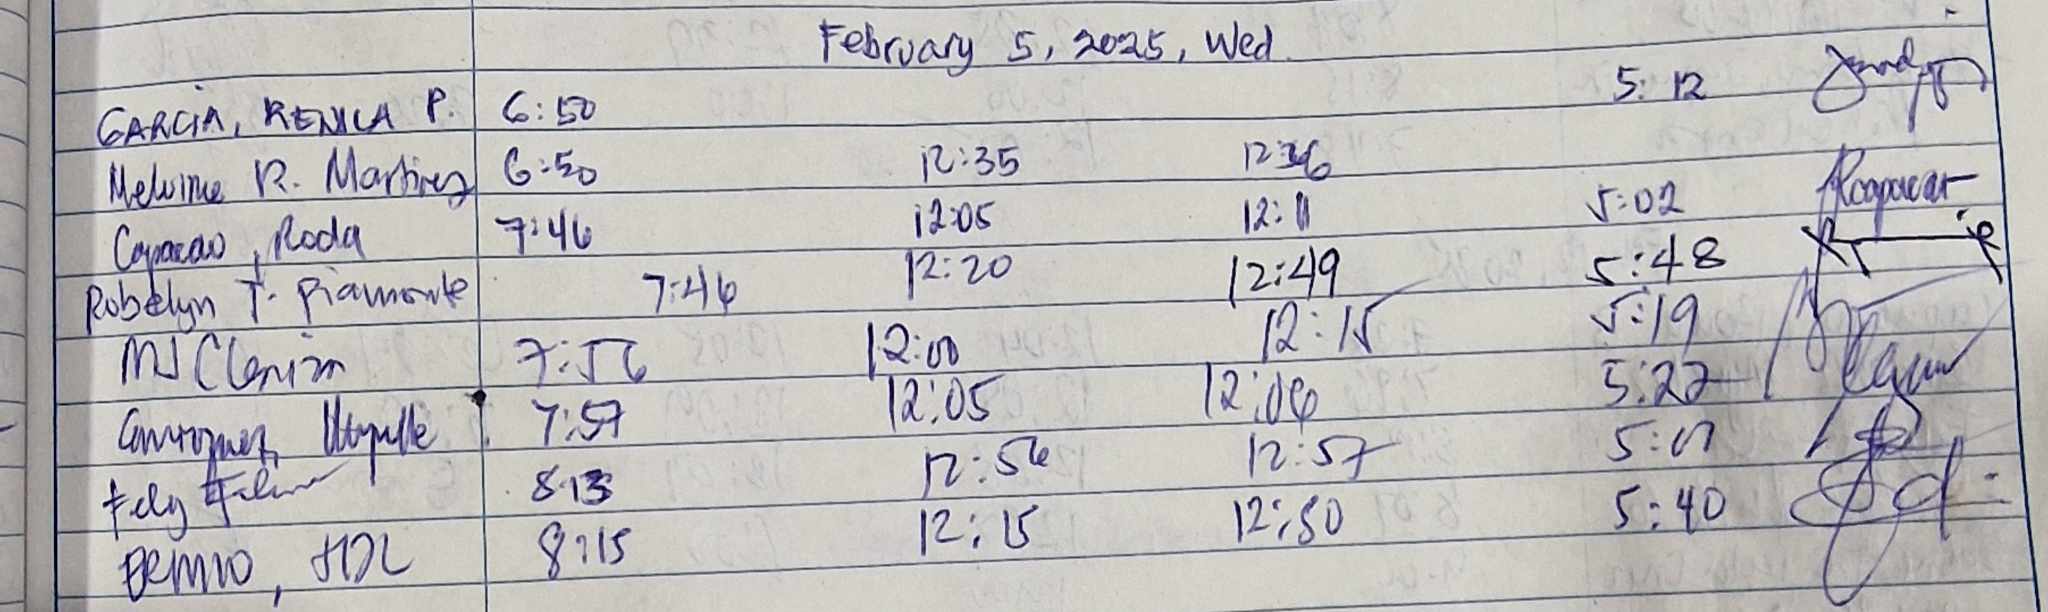 February 5, 2025, Wed.
GARCIA, RENICA P. 6:50 5:12
Melvine R. Martinez 6:50 12:35 12:36
Capacao, Roda 7:46 12:05 12:11 5:02
Robelyn T. Piamonte 7:46 12:20 12:49 5:48
MJ Clenizn 7:56 12:00 12:15 5:19
7:57 12:05 12:06 5:22
Fely 8:13 12:56 12:57 5:07
8:15 12:15 12:50 5:40